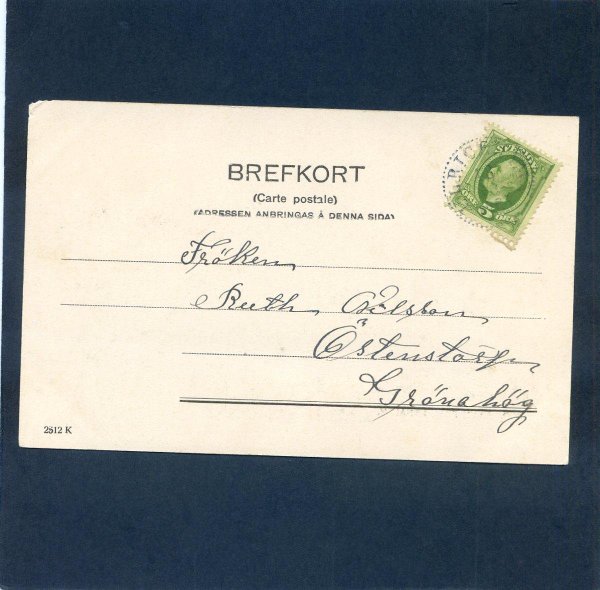 BREFKORT
(Carte postale)
(ADRESSEN ANBRINGAS Å DENNA SIDA)
SVERIGE
ÖRE 5 ÖRE
Fröken
Ruth
Östenstorp
Grönahög
2512 K